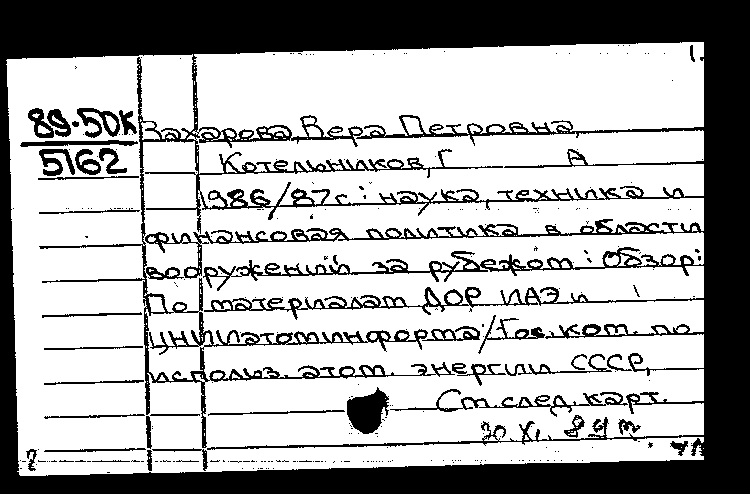 1.
89-50К
5162
Захарова, Вера Петровна,
Котельников, Г А
1986/87г.: наука, техника и
финансовая политика в области
вооружений за рубежом: Обзор:
По материалам ДОР ИАЭ и
ЦНИИатоминформа/Гос. ком. по
использ. атом. энергии СССР,
См. след. карт.
30.XI. 89